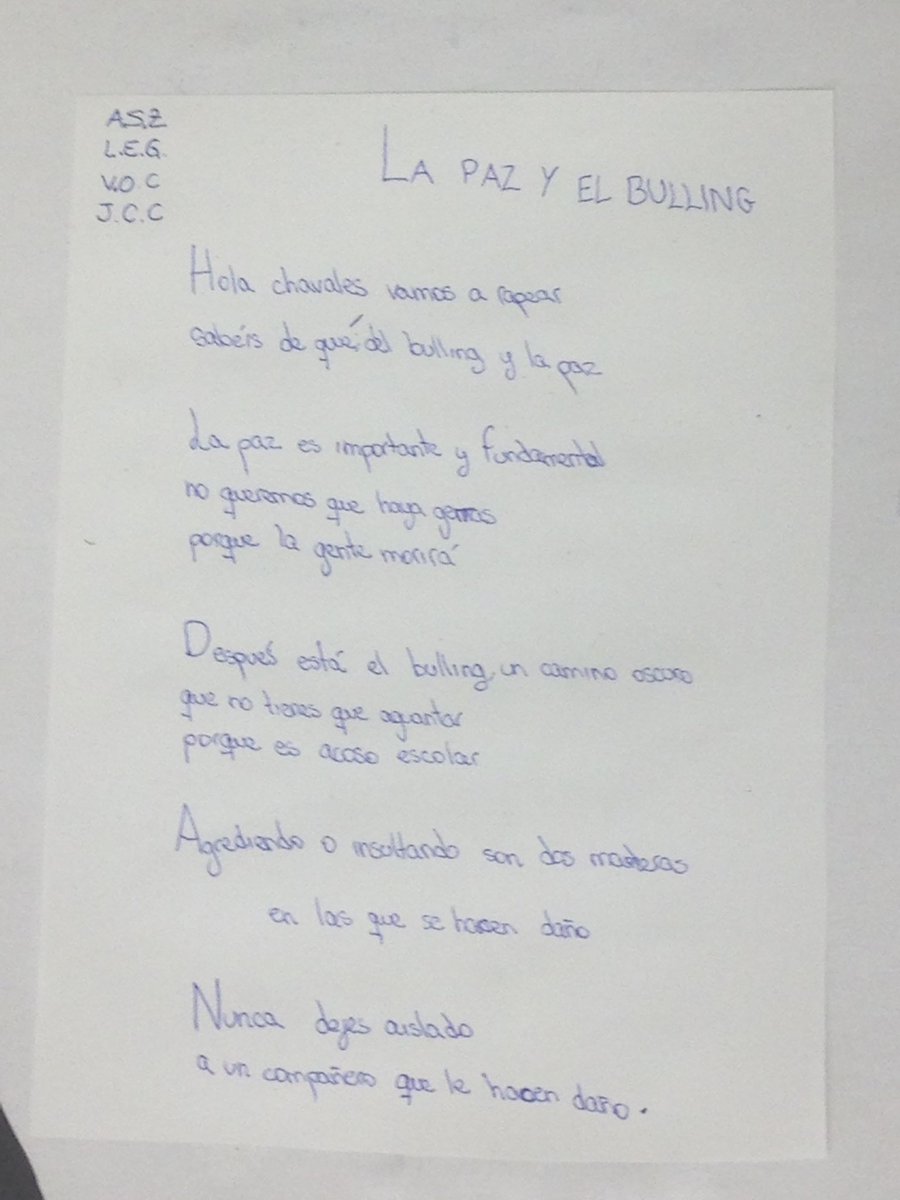 A.S.Z
L.E.G.
V.O.C
J.C.C
LA PAZ Y EL BULLING
Hola chavales vamos a rapear
sabéis de qué, del bulling y la paz
La paz es importante y fundamental
no queremos que haya
porque la gente morirá
Después está el bulling, un camino oscuro
que no tienes que aguantar
porque es acoso escolar
Agrediendo o insultando son dos
en las que se hacen daño
Nunca dejes aislado
a un compañero que le hacen daño.